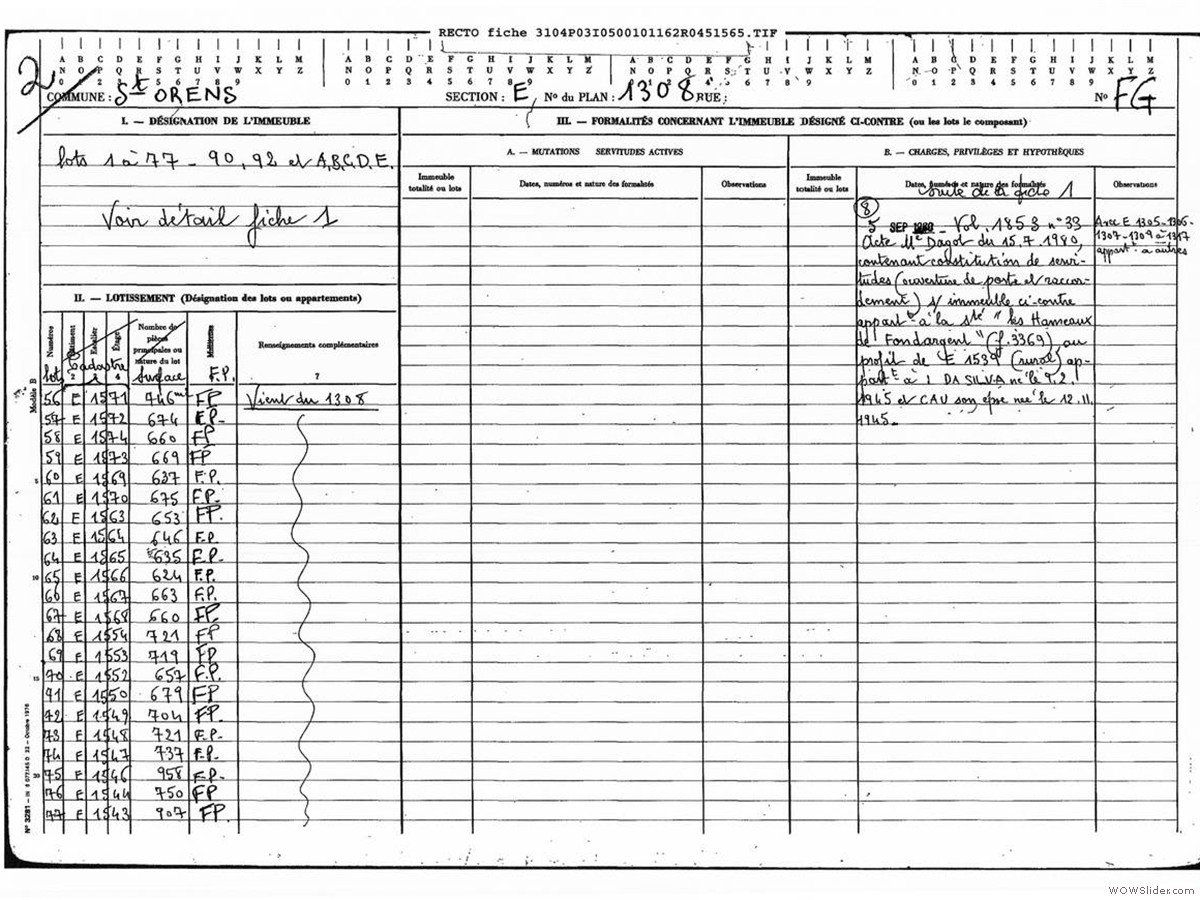 RECTO fiche 3104P03I0500101162R0451565.TIF
A B C D E F G H I J K L M
N O P Q R S T U V W X Y Z
0 1 2 3 4 5 6 7 8 9
2
COMMUNE : St ORENS
SECTION : E, No du PLAN : 1308 RUE :
No FG
I. — DÉSIGNATION DE L'IMMEUBLE
lots 1 à 77 - 90, 92 et A,B,C,D,E.
Voir détail fiche 1
II. — LOTISSEMENT (Désignation des lots ou appartements)
Numéros Bâtiment Escalier Étage Nombre de pièces principales ou nature du lot Renseignements complémentaires
lots Cadastre Surface F.P.
2 4 7
56 E 1571 746 m² FP Vient du 1308
57 E 1572 674 F.P-
58 E 1574 660 FP
59 E 1573 669 FP
60 E 1569 637 F.P.
61 E 1570 675 F.P.
62 E 1563 653 FP.
63 E 1564 646 F.P
64 E 1565 635 F.P.
65 E 1566 624 F.P.
66 E 1567 663 F.P.
67 E 1568 660 FP.
68 E 1554 721 FP
69 E 1553 719 FP
70 E 1552 657 F.P.
71 E 1550 679 FP
72 E 1549 704 FP.
73 E 1548 721 F.P.
74 E 1547 737 F.P.
75 E 1546 958 F.P-
76 E 1544 750 FP
77 E 1543 907 FP.
III. — FORMALITÉS CONCERNANT L'IMMEUBLE DÉSIGNÉ CI-CONTRE (ou les lots le composant)
A. — MUTATIONS SERVITUDES ACTIVES
Immeuble totalité ou lots
Dates, numéros et nature des formalités
Observations
B. — CHARGES, PRIVILÈGES ET HYPOTHÈQUES
Immeuble totalité ou lots
Dates, numéros et nature des formalités
Observations
suite de la fiche 1
8
5 SEP 1980 - Vol. 1853 n° 33
Acte Me Dagot du 15.7.1980,
contenant constitution de servi-
tudes (ouverture de porte et raccor-
dement) s/ immeuble ci-contre
appart- à la sté " les Hameaux
de Fondargent " (f.3369) au
profit de E 1539 (rural) ap-
part t à : DA SILVA né le 9.2.
1945 et CAU son épse née le 12.11.
1945.
Avec E 1305-1306-
1307-1309 à 1317
appart t à autres
Modèle B
5
10
15
20
N° 3281 — IN 8 077345 D 22 — Octobre 1976
WOWSlider.com